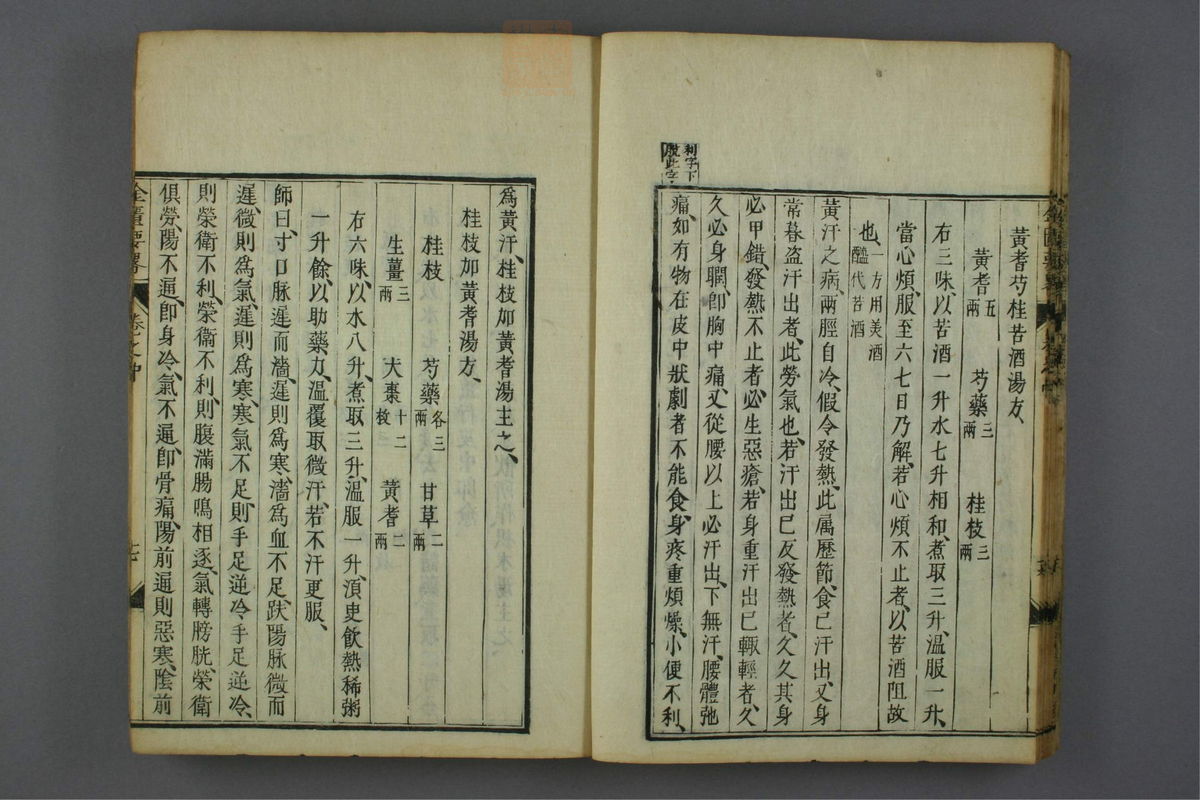 黃耆芍桂苦酒湯方、
黃耆五兩 芍藥三兩 桂枝三兩
右三味、以苦酒一升水七升相和、煮取三升、溫服一升、
當心煩、服至六七日乃解、若心煩不止者、以苦酒阻故
也、一方用美酒醯代苦酒
黃汗之病、兩脛自冷、假令發熱、此属歷節、食已汗出、又身
常暮盗汗出者、此勞氣也、若汗出已反發熱者、久久其身
必甲錯、發熱不止者、必生惡瘡、若身重汗出已輙輕者、久
久必身瞤、卽胸中痛、又從腰以上必汗出、下無汗、腰髖弛
痛、如有物在皮中狀、劇者不能食、身疼重煩燥、小便不利、
利字下
爲黃汗、桂枝加黃耆湯主之、
桂枝加黃耆湯方、
桂枝 芍藥各三兩 甘草二兩
生薑三兩 大棗十二枚 黃耆二兩
右六味、以水八升、煮取三升、溫服一升、須臾飮熱稀粥
一升餘、以助藥力、溫覆取微汗、若不汗更服、
師曰、寸口脉遲而濇、遲則爲寒、濇爲血不足、趺陽脉微而
遲、微則爲氣、遲則爲寒、寒氣不足、則手足逆冷、手足逆冷、
則榮衛不利、榮衛不利、則腹滿腸鳴相逐、氣轉膀胱、榮衛
俱勞、陽不通、卽身冷、氣不通、卽骨痛、陽前通則惡寒、陰前
金匱要畧 卷之中